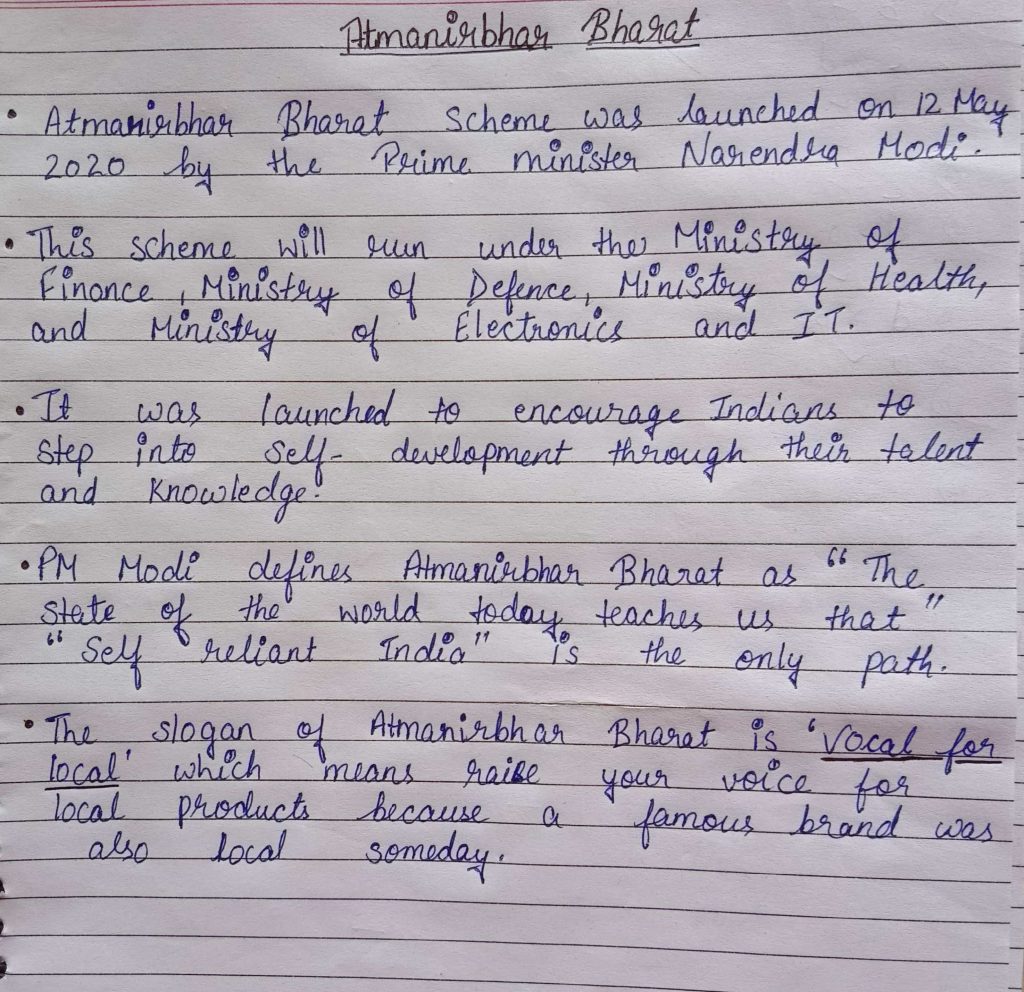 Atmanirbhar Bharat
• Atmanirbhar Bharat scheme was launched on 12 May
2020 by the Prime minister Narendra Modi.
• This scheme will run under the Ministry of
Finance, Ministry of Defence, Ministry of Health,
and Ministry of Electronics and IT.
• It was launched to encourage Indians to
step into self- development through their talent
and knowledge.
• PM Modi defines Atmanirbhar Bharat as "The
state of the world today teaches us that"
"Self reliant India" is the only path.
• The slogan of Atmanirbhar Bharat is 'Vocal for
local' which means raise your voice for
local products because a famous brand was
also local someday.